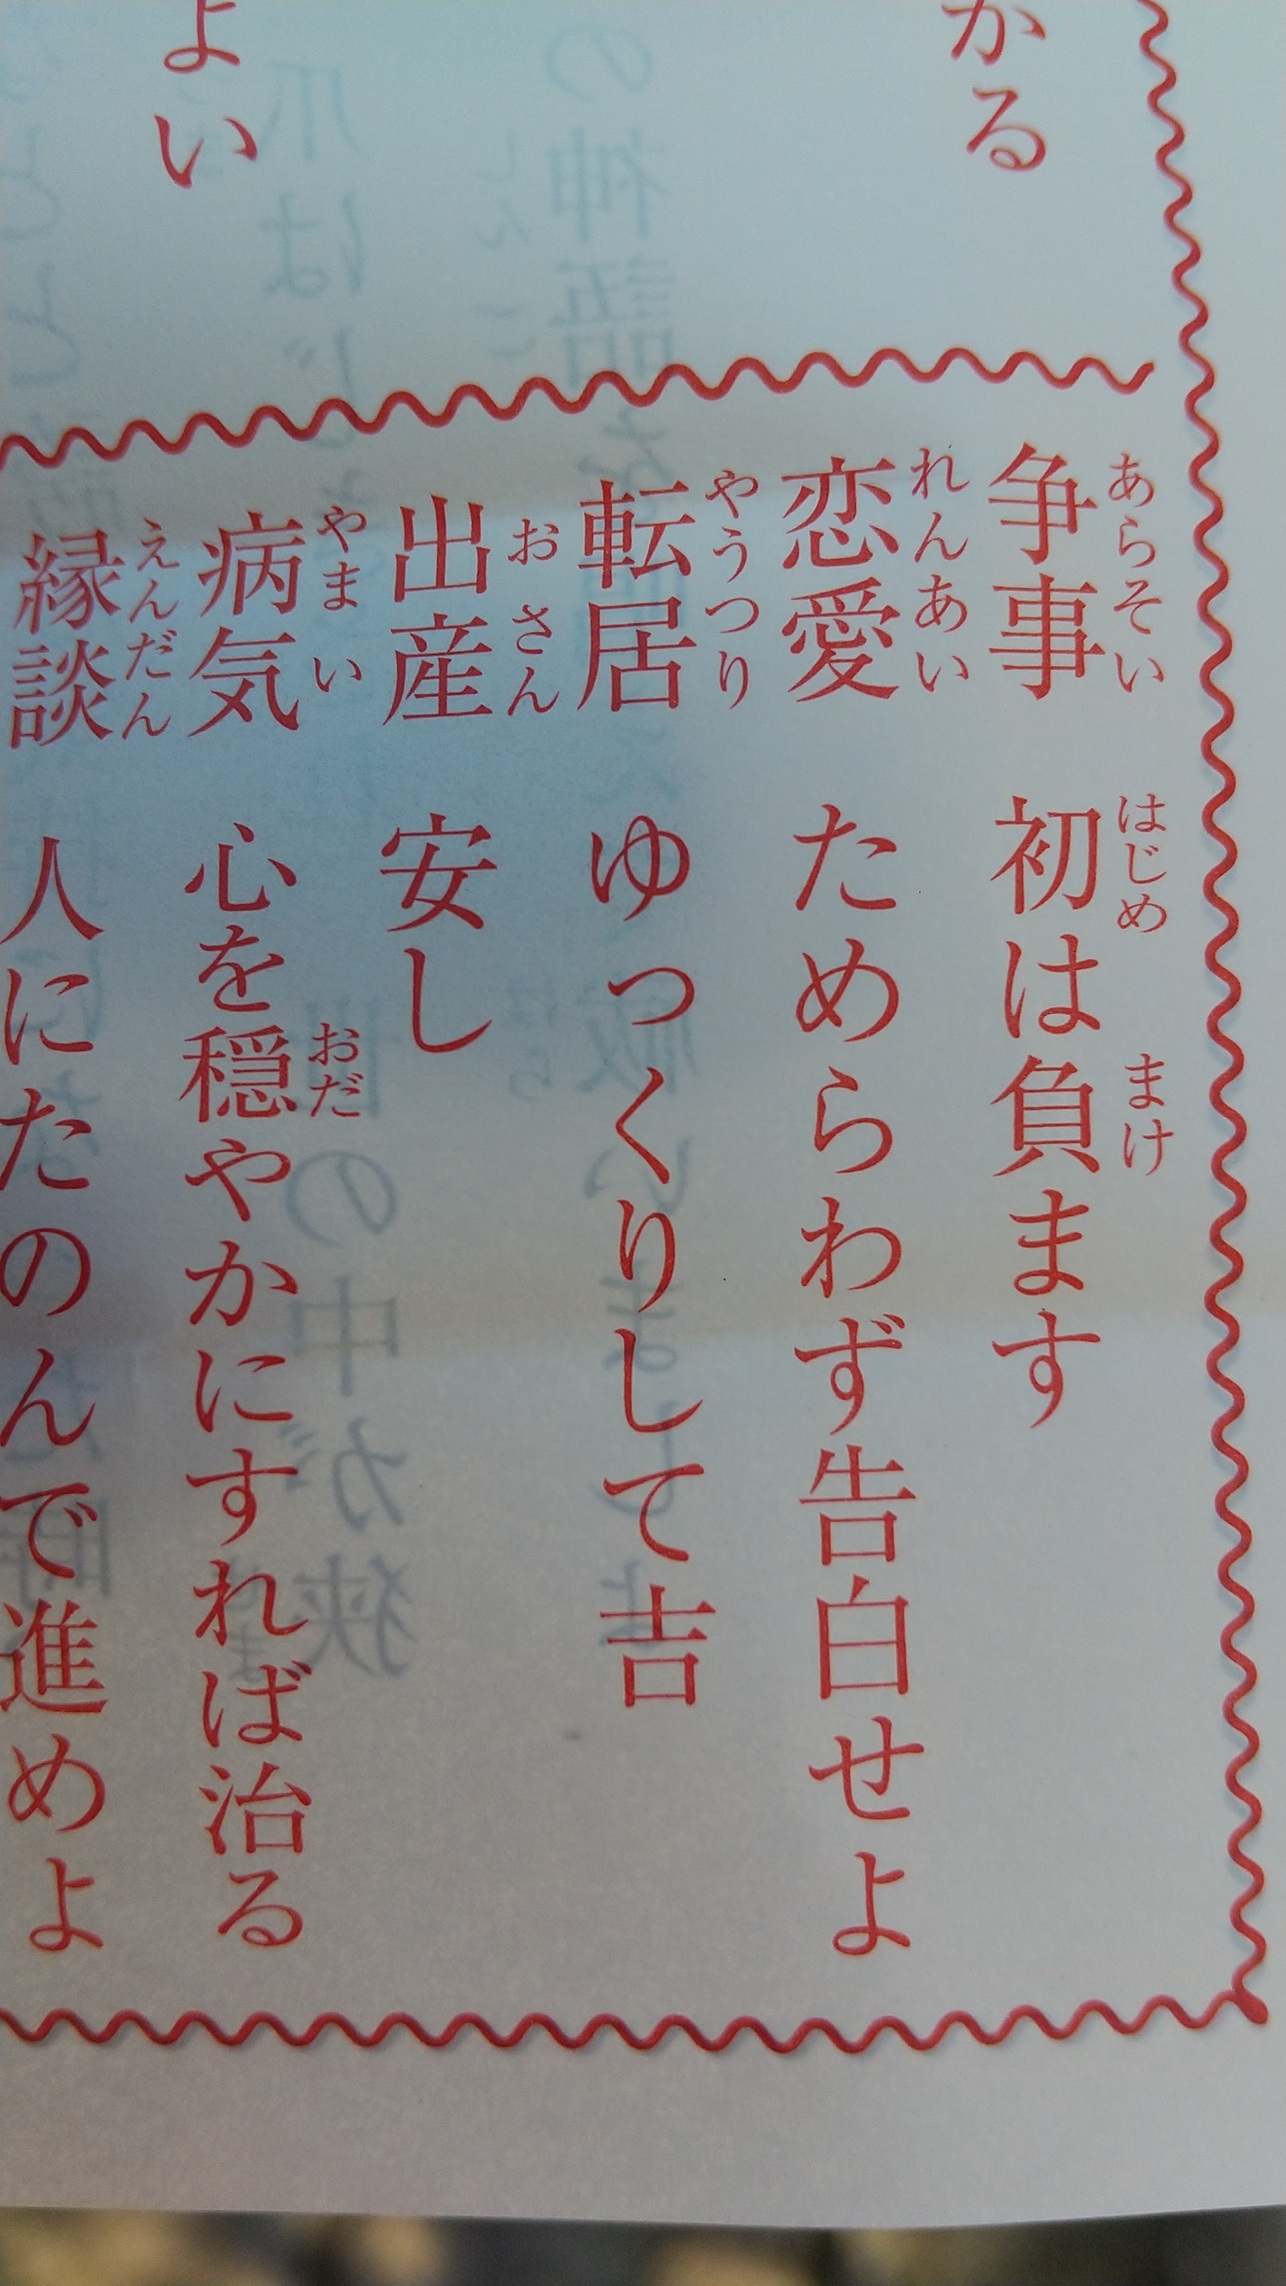 かる
よい
争事 初は負ます
あらそい はじめ まけ
恋愛 ためらわず告白せよ
れんあい
転居 ゆっくりして吉
やうつり
出産 安し
おさん
病気 心を穏やかにすれば治る
やまい おだ
縁談 人にたのんで進めよ
えんだん